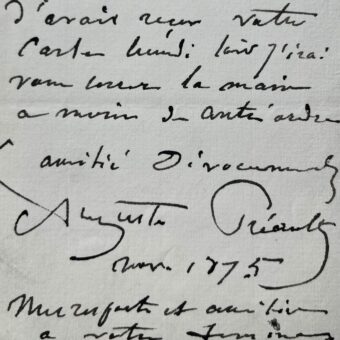 J'avais reçu votre
Carte lundi soir j'irai
vous serrer la main
a moins de contr'ordre
amitié Dévouement
Auguste Préault
nov. 1875
Mes respects et amitiés
a votre